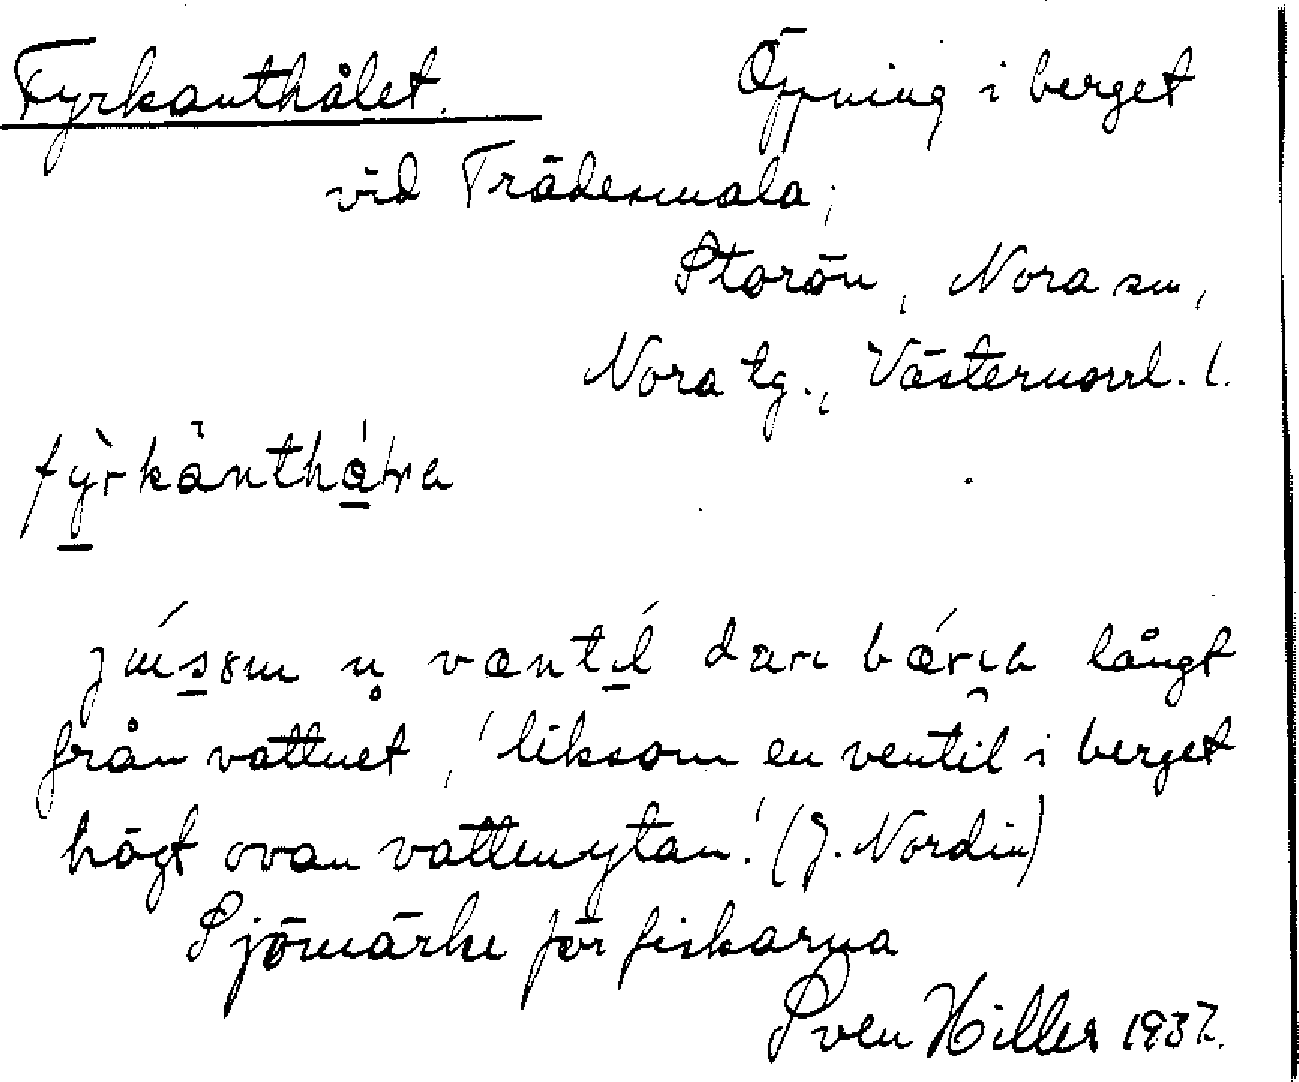 Fyrkanthålet. Öppning i berget
vid Trädesmala,
Storön, Nora sn,
Nora tg., Västernorrl. l.
långt
från vattnet, 'liksom en ventil i berget
högt ovan vattenytan.' (J. Nordin)
Sjömärke för fiskarna
Sven Hiller 1937.